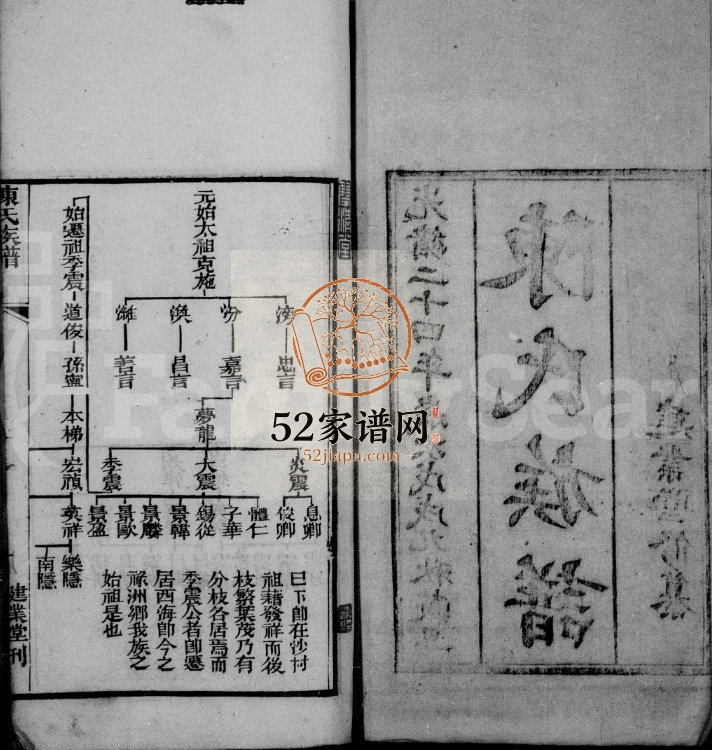 陳氏族譜
光緒二十四年歲次戊戌
元始太祖克施
滂
汾
渙
濰
忠言
嘉言
昌言
善言
夢龍
炎震
大震
季震
息卿
俊卿
體仁
子華
錫從
景韓
景麟
景歐
景盈
始遷祖季震
道俊
孫寧
本梯
宏禎
英祥
樂隱
南隱
曰下卽在沙村
祖藉發祥而後
枝繁葉茂乃有
分枝各居焉而
季震公者卽遷
居西海卽今之
祿洲鄉我族之
始祖是也
陳氏族譜
建業堂刊
52家谱网
52jiapu.com